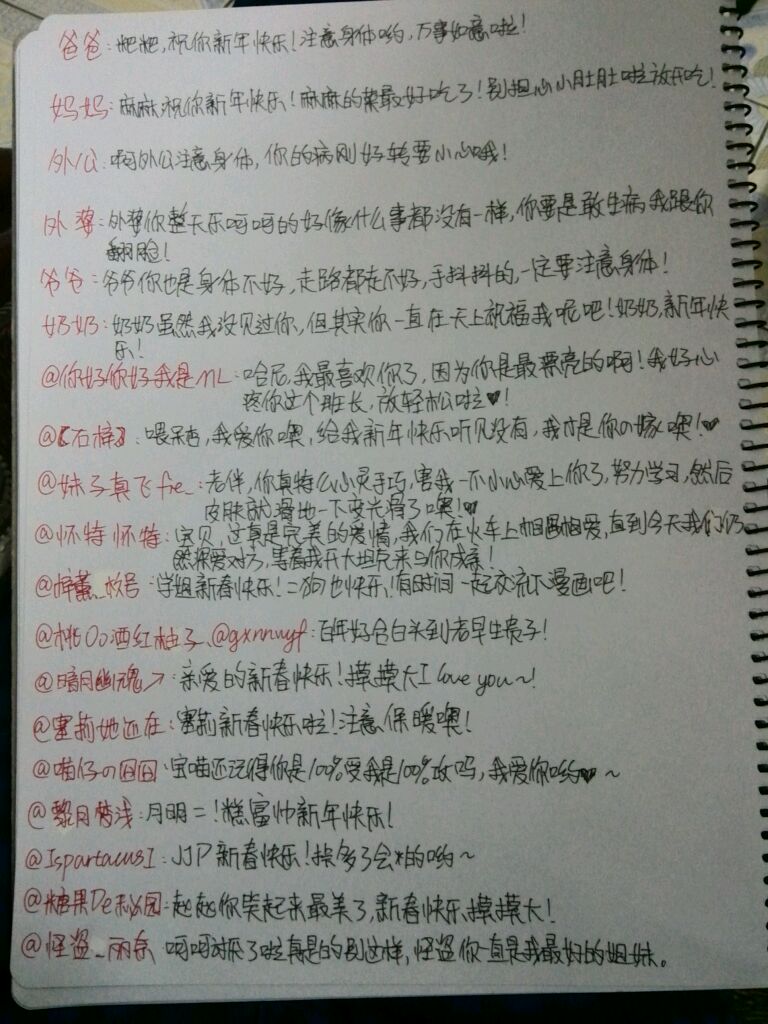 爸爸：粑粑，祝你新年快乐！注意身体哟，万事如意啦！
妈妈：麻麻祝你新年快乐！麻麻的菜最好吃了！别担心小肚肚啦放开吃！
外公：啊外公注意身体，你的病刚好转要小心哦！
外婆：外婆你整天乐呵呵的好像什么事都没有一样，你要是敢生病我跟你
翻脸！
爷爷：爷爷你也是身体不好，走路都走不好，手抖抖的，一定要注意身体！
奶奶：奶奶虽然我没见过你，但其实你一直在天上祝福我呢吧！奶奶，新年快
乐！
@你好你好我是NL：哈尼，我最喜欢你了，因为你是最漂亮的啊！我好心
疼你这个班长，放轻松啦♥！
@【石梓】：喂呆，我爱你噢，给我新年快乐听见没有，我才是你の嫁噢！♥
@妹子真飞fie_：老伴，你真特么心灵手巧，害我一不小心爱上你了，努力学习，然后
皮肤就滑地一下变光滑了噢！♥
@怀特怀特：宝贝，这真是完美的爱情，我们在火车上相遇相爱，直到今天我们仍
然很爱对方，等着我开大坦克来与你成亲！
@梓薰_枚号：学姐新春快乐！二狗也快乐！有时间一起交流下漫画吧！
@桃Oo西红柚子、@gxnnwyf：百年好合白头到老早生贵子！
@暗月幽魂↗：亲爱的新春快乐！摸摸大I love you~！
@塞莉她还在：塞莉新春快乐啦！注意保暖噢！
@喵仔の囧囧：宝喵还记得你是100%受我是100%攻吗，我爱你哟♥~
@黎月梦浅：月明二！糕富帅新年快乐！
@IspartacusI：JJP新春快乐！挨多了会*的哟~
@糖果De秘园：赵赵你笑起来最美了，新春快乐，摸摸大！
@怪盗_丽奈 呵呵讨厌了啦真是的别这样，怪盗你一直是我最好的姐妹。